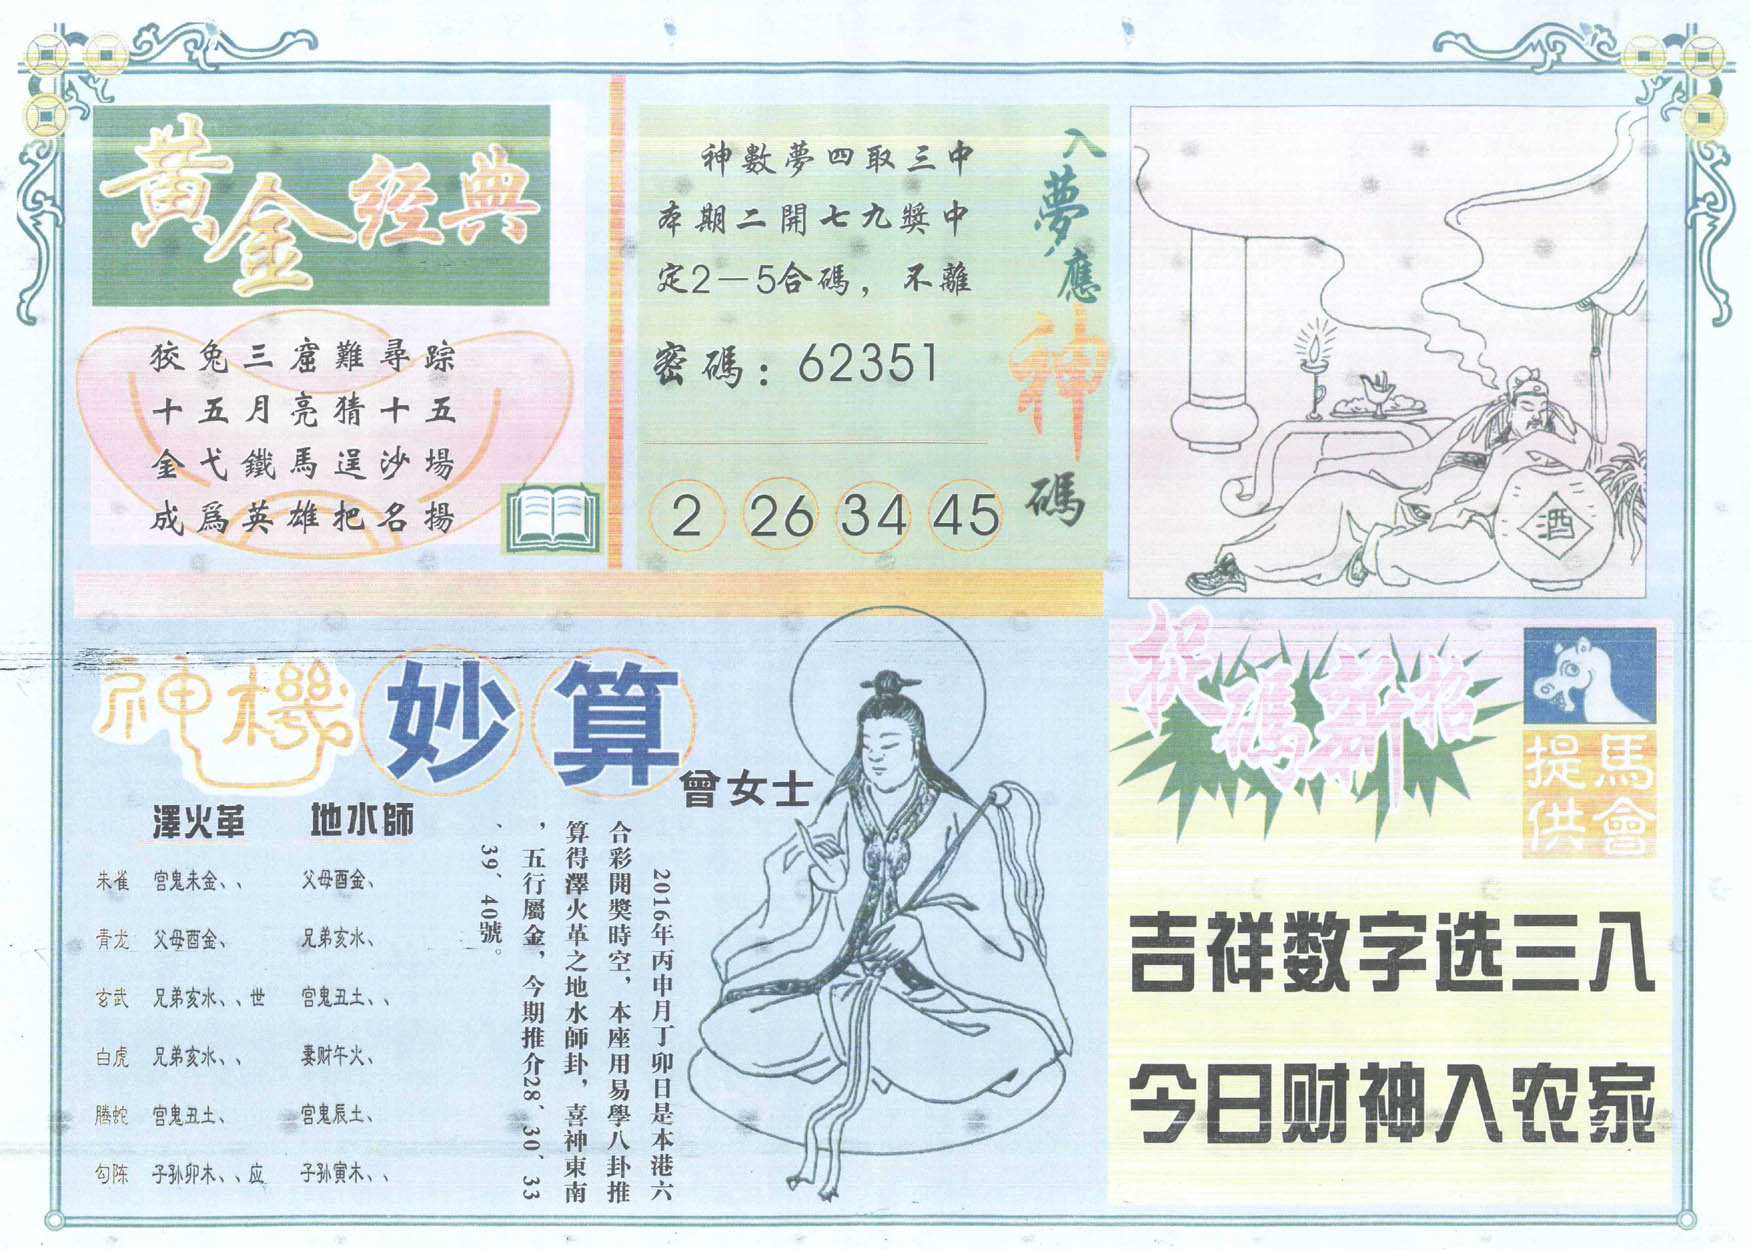 黃金经典
狡兔三窟難尋踪
十五月亮猜十五
金弋鐵馬逞沙場
成爲英雄把名揚
入夢應神碼
神數夢四取三中
本期二開七九獎中
定2—5合碼，不離
密碼：62351
2 26 34 45
酒
神機妙算
曾女士
澤火革 地水師
朱雀 宫鬼未金、、 父母酉金、
青龙 父母酉金、 兄弟亥水、
玄武 兄弟亥水、、世 宫鬼丑土、、
白虎 兄弟亥水、、 妻财午火、
騰蛇 宫鬼丑土、 宫鬼辰土、
勾陈 子孙卯木、、应 子孙寅木、、
2016年丙申月丁卯日是本港六
合彩開獎時空，本座用易學八卦推
算得澤火革之地水師卦，喜神東南
，五行屬金，今期推介28、30、33
、39、40號。
捉碼新招
馬會
提供
吉祥数字选三八
今日财神入农家